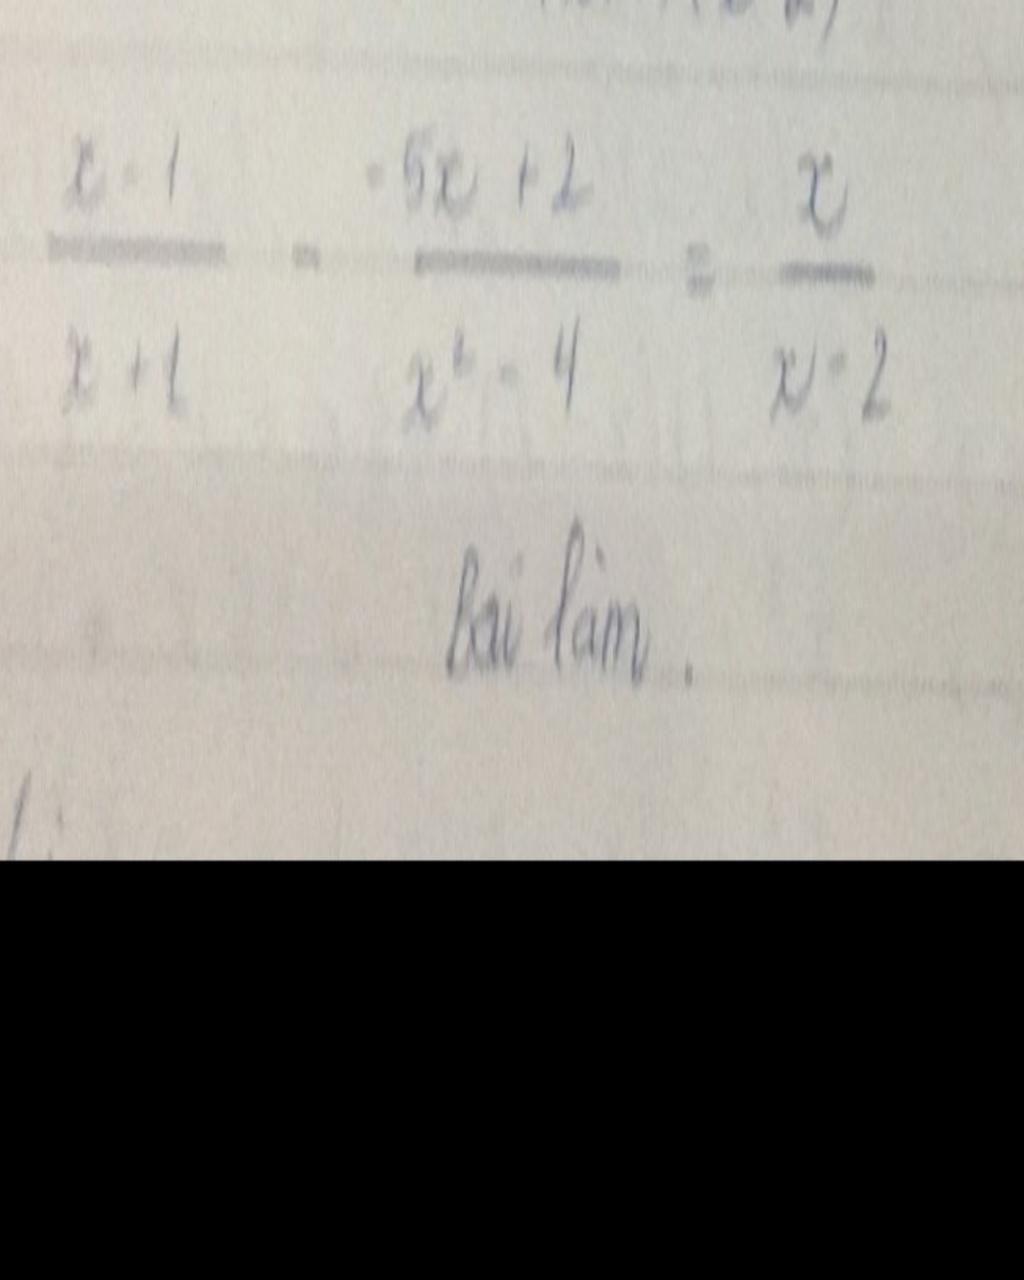 x - 1 / x + 2 - -5x + 2 / x² - 4 = x / x - 2
Bài làm.